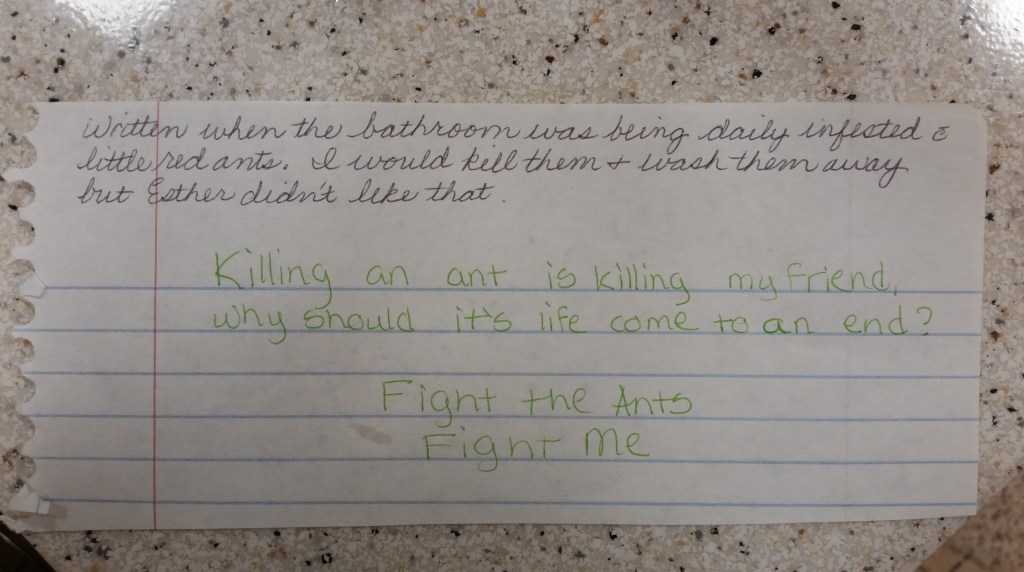 Written when the bathroom was being daily infested c̄
little red ants. I would kill them + wash them away
but Esther didn't like that.
Killing an ant is killing my friend,
why should it's life come to an end?
Fight the Ants
Fight Me